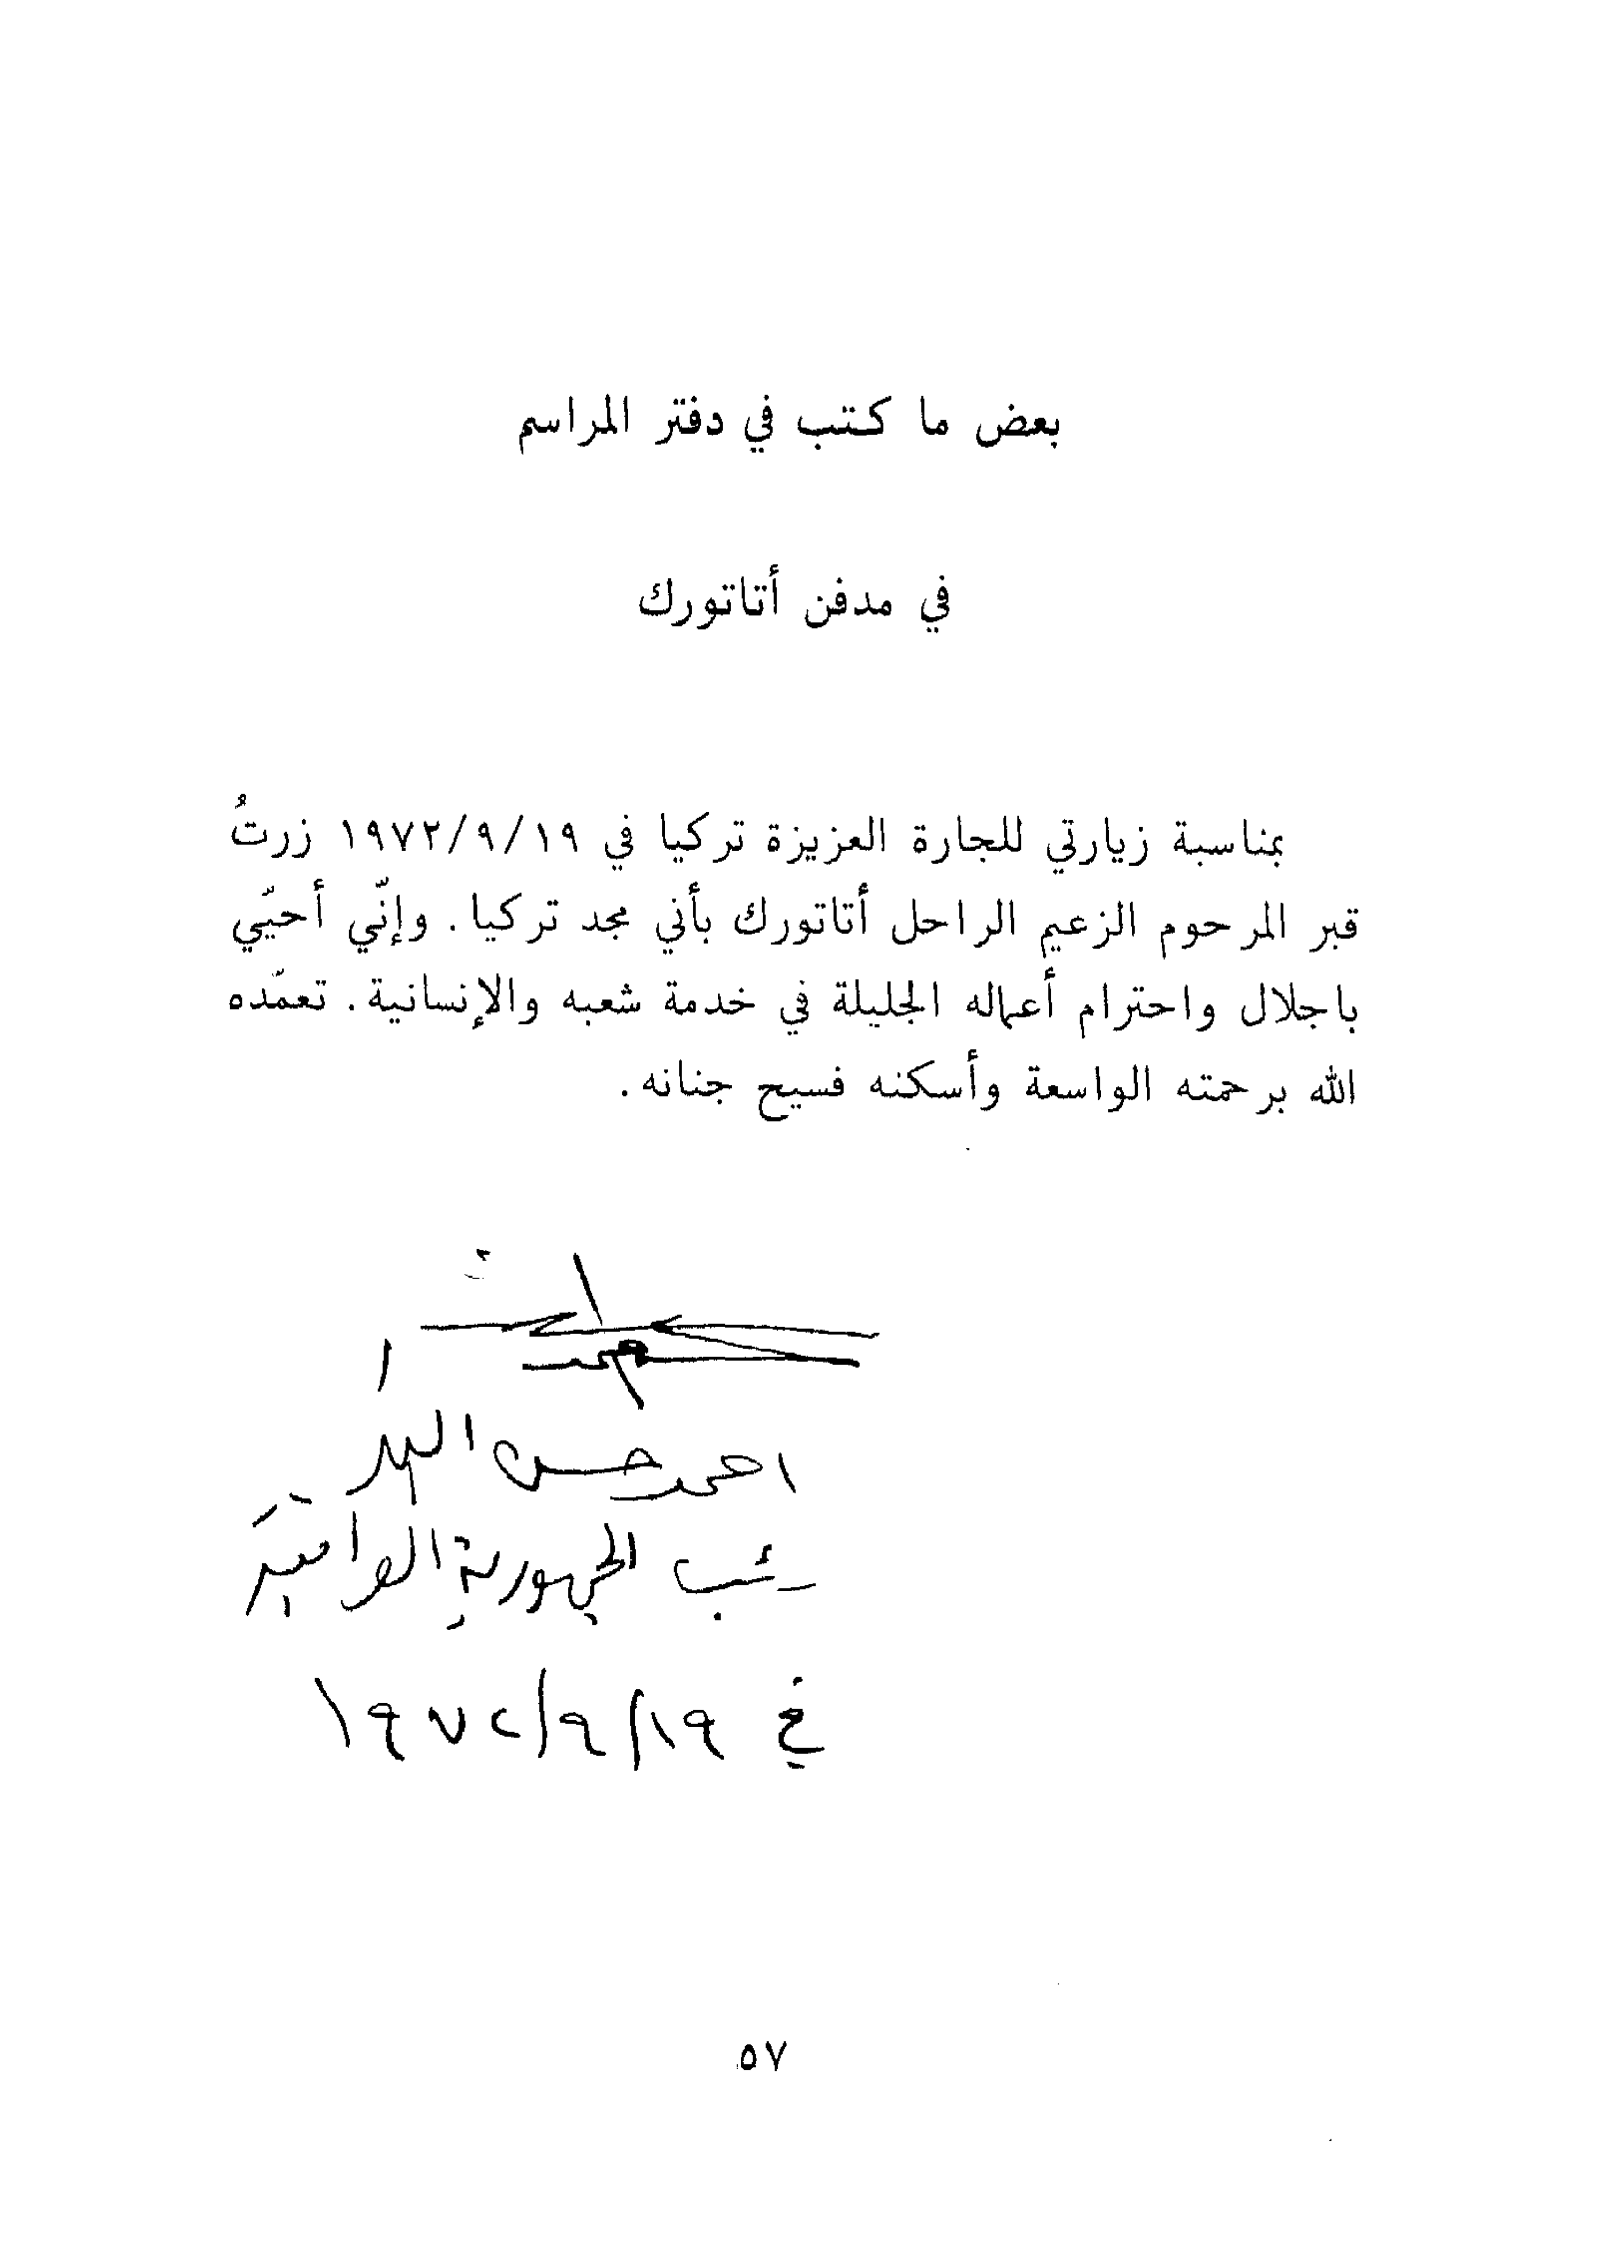 بعض ما كتب في دفتر المراسم
في مدفن أتاتورك
بمناسبة زيارتي للجارة العزيزة تركيا في ١٩٧٢/٩/١٩ زرتُ
قبر المرحوم الزعيم الراحل أتاتورك بأني مجد تركيا. وإنّي أحيّي
باجلال واحترام أعماله الجليلة في خدمة شعبه والإنسانية. تعمّده
الله برحمته الواسعة وأسكنه فسيح جنانه.
احمد حسن البكر
رئيس الجمهورية العراقية
في ١٩٧٢/٩/١٩
٥٧